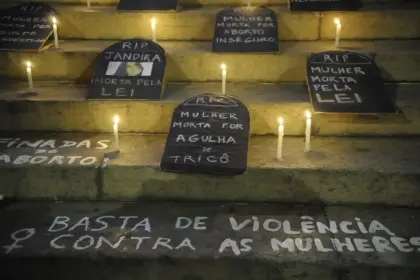 R.I.P
MULHER
MORTA POR
ABORTO
INSEGURO
RIP
JANDIRA
MORTA PELA
LEI
RIP
MULHER
MORTA PELA
LEI
RIP
MULHER
MORTA POR
AGULHA
DE
TRICÔ
INADAS
ABORTO
BASTA DE VIOLÊNCIA
CONTRA AS MULHERES